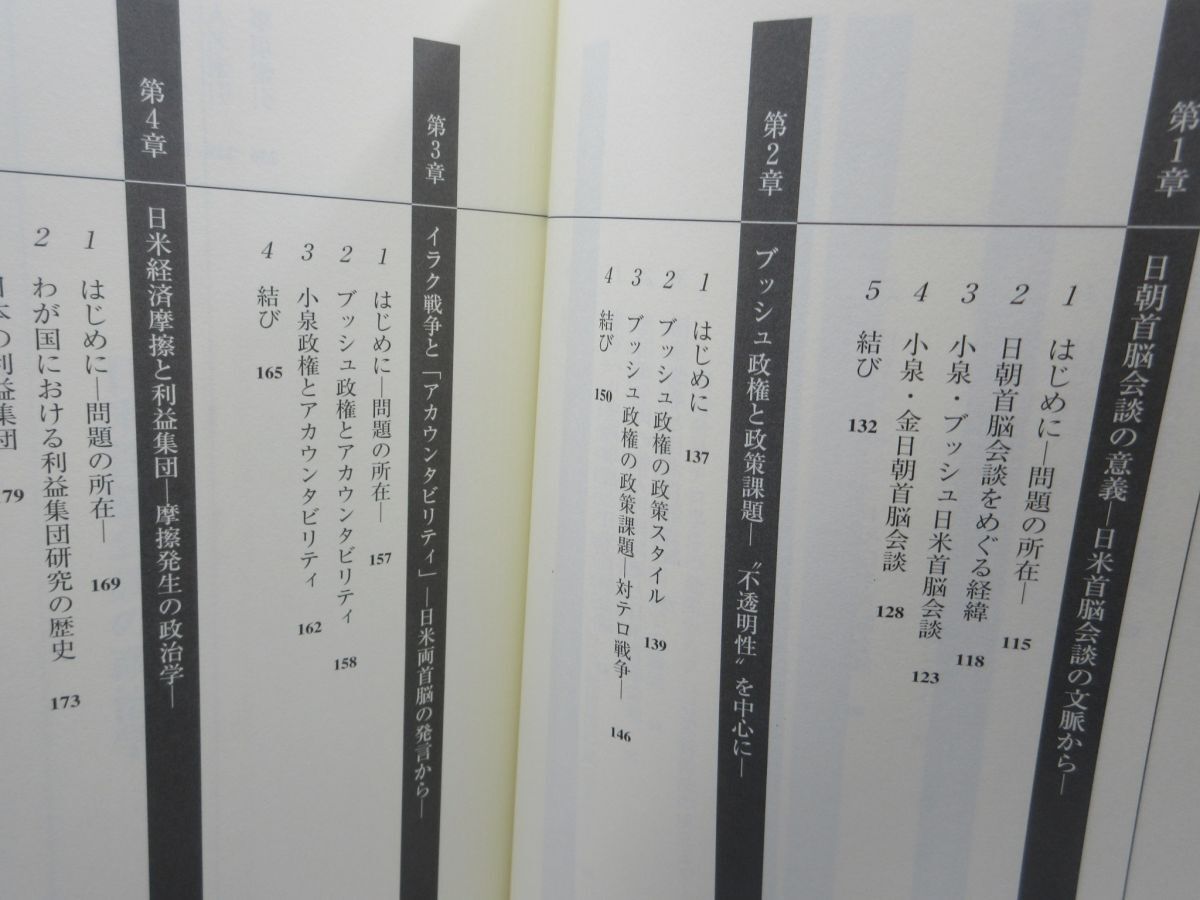 第1章 日朝首脳会談の意義―日米首脳会談の文脈から―
1 はじめに―問題の所在― 115
2 日朝首脳会談をめぐる経緯 118
3 小泉・ブッシュ日米首脳会談 123
4 小泉・金日朝首脳会談 128
5 結び 132
第2章 ブッシュ政権と政策課題―〝不透明性〟を中心に―
1 はじめに 137
2 ブッシュ政権の政策スタイル 139
3 ブッシュ政権の政策課題―対テロ戦争― 146
4 結び 150
第3章 イラク戦争と「アカウンタビリティ」―日米両首脳の発言から―
1 はじめに―問題の所在― 157
2 ブッシュ政権とアカウンタビリティ 158
3 小泉政権とアカウンタビリティ 162
4 結び 165
第4章 日米経済摩擦と利益集団―摩擦発生の政治学―
1 はじめに―問題の所在― 169
2 わが国における利益集団研究の歴史 173
日本の利益集団 179